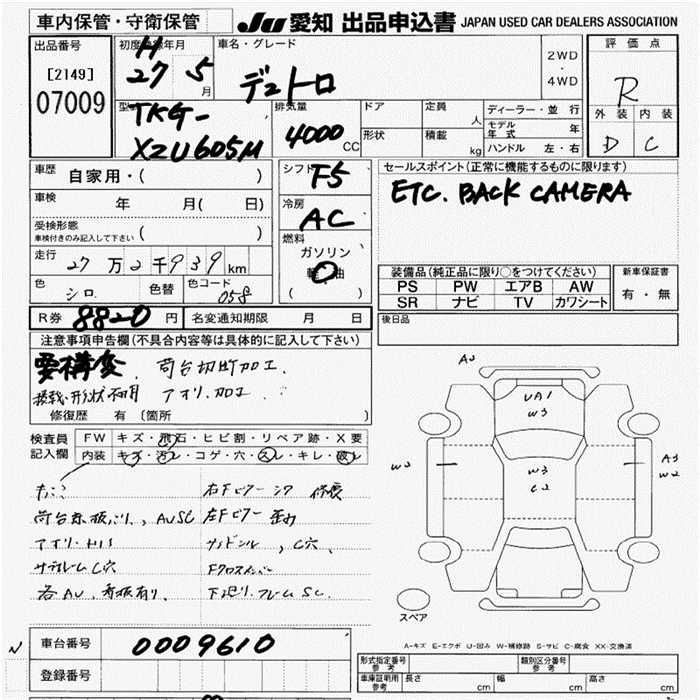 車内保管・守衛保管 JU 愛知 出品申込書 JAPAN USED CAR DEALERS ASSOCIATION
出品番号
[2149]
07009
初度登録年月
H
27 5 月
車名・グレード
デュトロ
2WD
・
4WD
評価点
R
外装 内装
D C
型式
TKG-
XZU605M
排気量
4000 CC
ドア
形状
定員 人
積載 kg
ディーラー・並行
モデル年式 年
ハンドル 左・右
車歴 自家用・( )
車検 年 月( 日)
受検形態
車検付きのみ記入して下さい ( )
走行 27万2千939 km
色 シロ 色替 色コード 058
シフト F5
冷房 AC
燃料
ガソリン
軽油
( )
セールスポイント(正常に機能するものに限ります)
ETC. BACK CAMERA
装備品(純正品に限り○をつけてください)
PS PW エアB AW
SR ナビ TV カワシート
新車保証書
有・無
R券 8820 円 名変通知期限 月 日
後日品
注意事項申告欄(不具合内容等は具体的に記入して下さい)
要構変 荷台切断加工.
積載・形状不明 アオリ加工.
修復歴 有 〔箇所 〕
検査員
記入欄
FW キズ・飛石・ヒビ割・リペア跡・X要
内装 キズ・汚レ・コゲ・穴・スレ・キレ・破レ
右Fピラー 修復
AUSC 左Fピラー 歪み
C穴
サブフレームC穴 Fクロスメンバー
各AU, 看板有り, 下廻り.フレームSC.
A3
UA1
W3
W3
C2
W2
A3
W2
スペア
A-キズ E-エクボ U-凹み W-補修跡 S-サビ C-腐食 XX-交換済
N
車台番号 0009610
登録番号
形式指定番号 参考
類別区分番号 参考
車庫証明用 参考 長さ cm 幅 cm 高さ cm